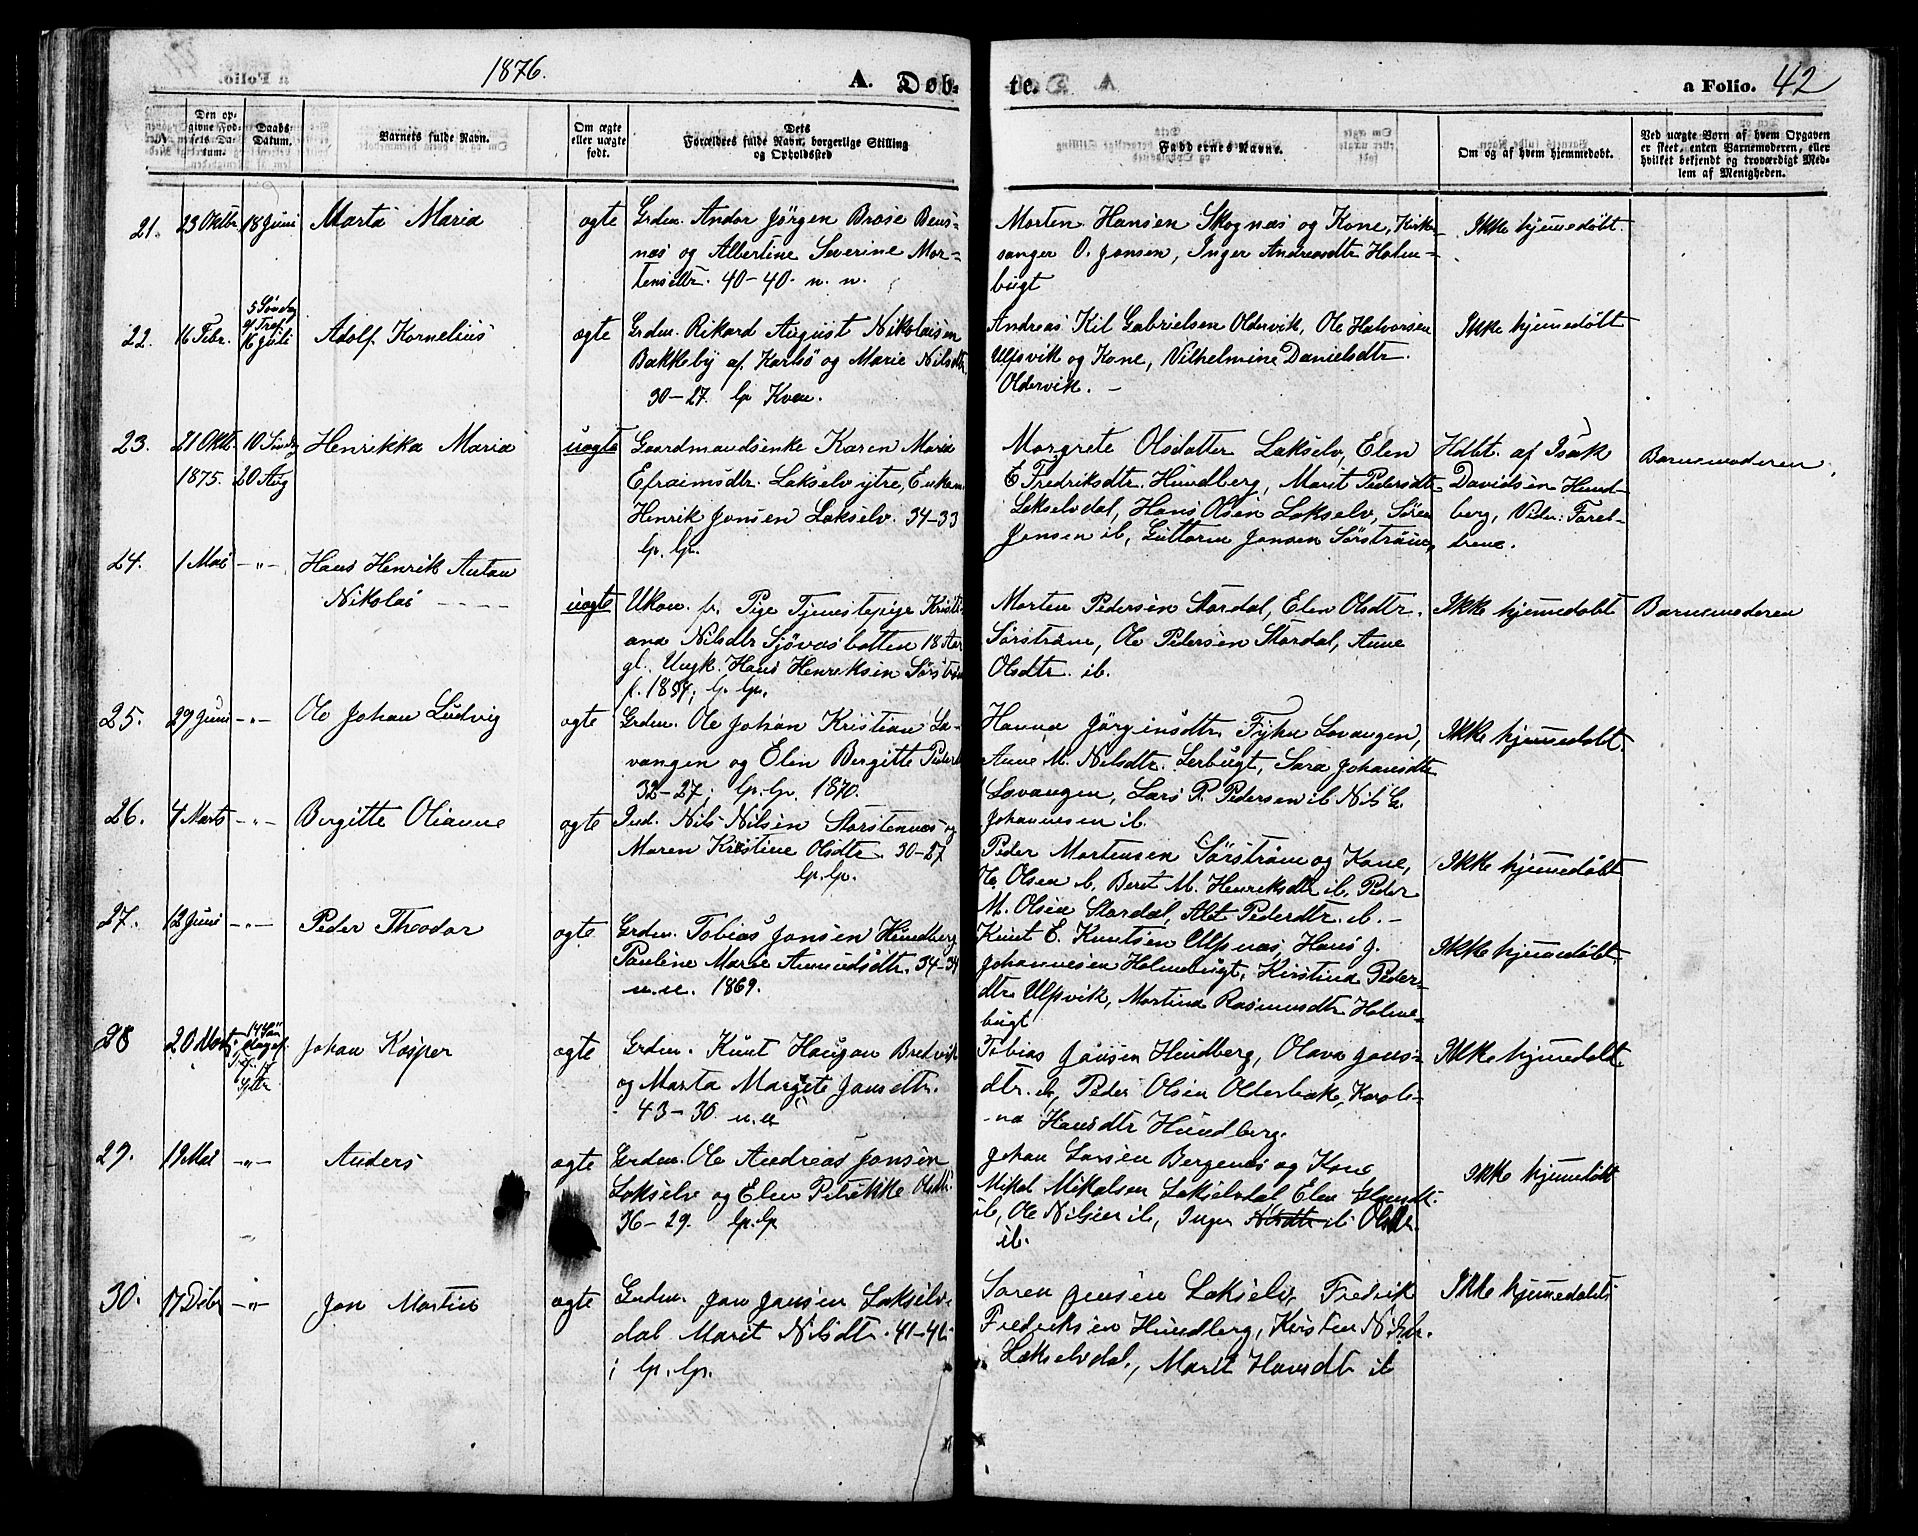 1876.
A. Døb-
te.
a Folio. 42
Den op-
givne Fød-
sels Da-
tum.
Daabs
Datum.
Barnets fulde Navn.
Om ægte
eller uægte
født.
Dets
Forældres fulde Navn, borgerlige Stilling
og Opholdssted
Faddernes Navne.
Om og af hvem hjemmedøbt.
Ved uægte Børn af hvem Opgaven
er skeet, enten Barnemoderen, eller
hvilket bekjendt og troværdigt Med-
lem af Menigheden.
21. 23 Oktbr. 18 Juni Marta Maria ægte
Grdm. Andor Jörgen Brose Bens-
næs og Albertine Severine Mor-
tensdtr. 40-40. n. n.
Morten Hansen Skognæs og Kone, Kirke-
sanger O. Jensen, Inger Andreasdtr Holm-
bugt
Ikke hjemmedøbt.
22. 16 Febr. 5 Söndag
ef Tref.
16 Juli
Adolf Kornelius ægte
Grdm. Rikard August Nikolaisen
Bakkeby af Karlsö og Marie Nilsdtr
30-27. lp Kvæn.
Andreas Kil Gabrielsen Oldervik, Ole Halvorsen
Ulfsvik og Kone, Vilhelmine Danielsdtr.
Oldervik. -
Ikke hjemmedøbt
23. 21 Oktb. 10 Söndag
1875. 20 Aug
Henrikka Maria uægte
Gaardmandsenke Karen Maria
Efraimsdtr. Lakselv ytre, Enkem.
Henrik Jonsen Lakselv. 34-33
lp. lp.
Margrete Olsdatter Lakselv, Elen
E Fredriksdtr. Hundberg, Marit Pedersdtr
Lakselvdal, Hans Olsen Lakselv, Sören
Jensen ib, Guttorm Jonsen Sörströmen
Hdbt. af Isak
Davidsen Hund-
berg, Vidn: Forel-
drene.
Barnemoderen
24. 1 Mai -"- Hans Henrik Anton
Nikolai ---- uægte
Ukon. fr. Pige Tjenestepige Kristi-
ana Nilsdtr Sjövasbotten 18 Aar
gl. Ungk. Hans Henriksen Sörström
f. 1854; lp. lp.
Morten Pedersen Stordal, Elen Olsdtr.
Sörström, Ole Pedersen Stordal, Anne
Olsdtr. ib.
Ikke hjemmedöbt Barnemoderen
25. 29 Juni -"- Ole Johan Ludvig ægte
Grdm. Ole Johan Kristian La-
vangen og Elen Bergitte Peders
32-27; lp. lp. 1870.
Hanna Jörginsdtr. Lavangen,
Anne M. Nilsdtr. Lerbugt, Sara Johansdtr
Lavangen, Lars P. Pedersen ib Nils L.
Johannesen ib.
Ikke hjemmedöbt
26. 4 Marts -"- Bergitte Olianne ægte
Ind. Nils Nilsen Storstennæs og
Maren Kristine Olsdtr. 30-27
lp. lp.
Peder Mortensen Sörström og Kone,
Ole Olsen ib, Beret M. Henriksdtr ib, Peder
M. Olsen Stordal, Alet Pedersdtr. ib. -
Ikke hjemmedöbt
27. 12 Juni -"- Peder Theodor ægte
Grdm. Tobias Jonsen Hundberg
Pauline Marie Amundsdtr. 34-34
n. n. 1869.
Knut E. Knutsen Ulfsnæs, Hans J.
Johannesen Holmbugt, Kirstina Peders-
dtr Ulfsvik, Martina Rasmusdtr Holm-
bugt
Ikke hjemmedöbt.
28 20 Marts 14 Sön
dag ef.
Tref. 17
Sptbr
Johan Kasper ægte
Grdm. Knut Haugan Bredvik
og Marta Margrete Jonsdtr.
43-30 n. n
Tobias Jonsen Hundberg, Olava Jons-
dtr. ib, Peder Olsen Olderbak, Karoli-
-na Hansdtr Hundberg.
Ikke hjemmedöbt.
29. 19 Mai -"- Anders ægte
Grdm. Ole Andreas Jonsen
Lakselv og Elen Petrikke Olsdtr.
36-29. lp. lp
Johan Larsen Bergenæs og Kone,
Mikal Mikalsen Lakselvdal, Elen Hansdtr.
ib, Ole Nilsen ib, Inger Nilsdtr ib Olsdtr.
ib.
Ikke hjemmedöbt
30. 17 Debr -"- Jon Martin ægte
Grdm. Jon Jonsen Lakselv-
dal Marit Nilsdtr. 41-41
lp. lp.
Sören Jensen Lakselv, Fredrik
Fredriksen Hundberg, Kirsten Nilsdtr.
Lakselvdal, Marit Hansdtr ib
Ikke hjemmedöbt